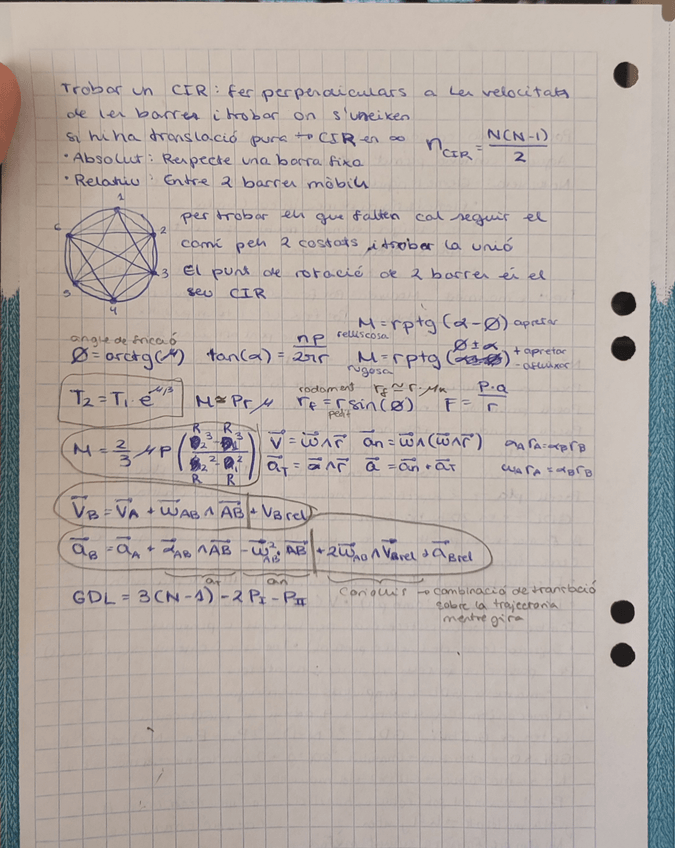 Trobar un CIR: fer perpendiculars a les velocitats
de les barres i trobar on s'uneixen
si hi ha translació pura → CIR en ∞ n_CIR = N(N-1)/2
· Absolut: Respecte una barra fixa
· Relatiu: Entre 2 barres mòbils
1
2
3
4
5
6
per trobar els que falten cal seguir el
camí pels 2 costats i trobar la unió
El punt de rotació de 2 barres és el
seu CIR
M = r p tg (α - Ø) apretar
relliscosa
angle de fricció
Ø = arctg(μ) tan(α) = np/2πr M = r p tg (Ø ± α) + apretar - afluixar
rugosa
T₂ = T₁ · e^μβ M ≃ P r μ rodament r_f ≃ r · μ r_f = r sin(Ø) petit F = P·a/r
M = 2/3 μP (R₂³ - R₁³ / R₂² - R₁²) v⃗ = ω⃗ ∧ r⃗ a⃗n = ω⃗ ∧ (ω⃗ ∧ r⃗) α_A r_A = α_B r_B
a⃗_T = α⃗ ∧ r⃗ a⃗ = a⃗n + a⃗_T ω_A r_A = α_B r_B
V⃗_B = V⃗_A + ω⃗_AB ∧ AB⃗ + V_B rel
a⃗_B = a⃗_A + α⃗_AB ∧ AB⃗ - ω⃗²_AB · AB⃗ + 2ω⃗_AB ∧ V⃗_Brel + a⃗_Brel
a_T an
GDL = 3(N-1) - 2P_I - P_II Coriolis → combinació de translació
sobre la trajectoria
mentre gira